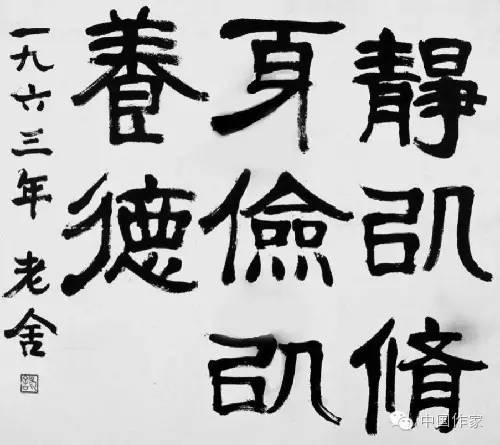 靜以脩
身儉以
養德
一九六三年 老舍
中国作家